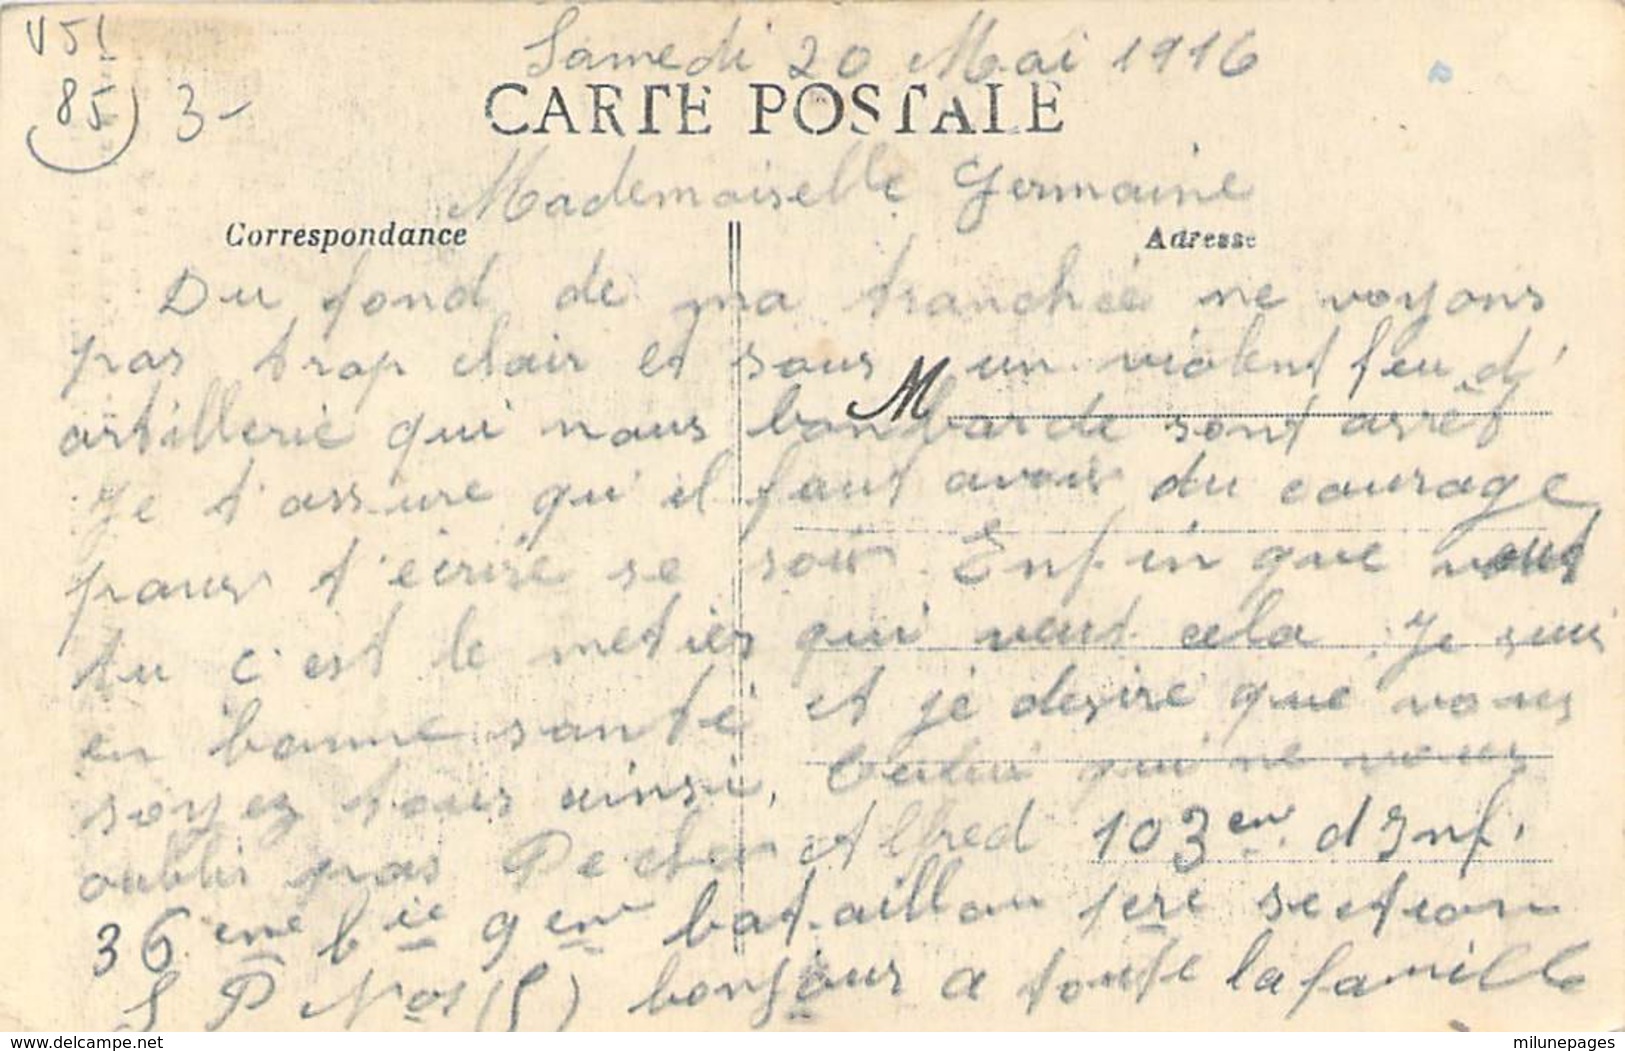 V51
85) 3-
Samedi 20 Mai 1916
CARTE POSTALE
Mademoiselle Germaine
Correspondance
Adresse
Du fond de ma tranchée ne voyons
pas trop clair et sous un violent feu d'
M
artillerie qui nous bonbarde sont arrêt
Je t'assure qu'il faut avoir du courage
pour t'ecrire se soir. Enfin que veut
tu c'est le metier qui veut cela. Je suis
en bonne santé et je desire que vous
soyez tous ainsi, Celui qui ne vous
oublis pas Alfred 103em d'Inf.
36eme bie 9em bataillon 1ere section
S P (5) bonjour a toute la famille
www.delcampe.net
milunepages